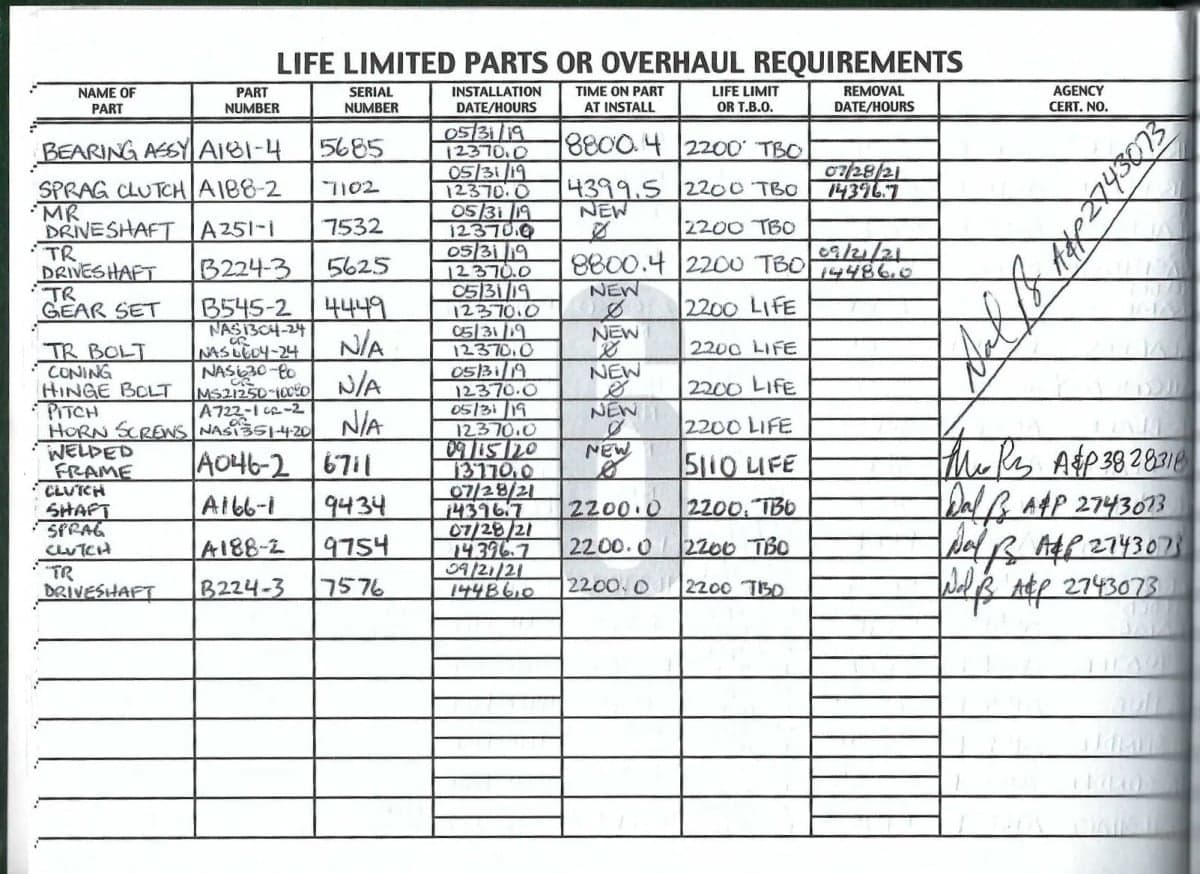 LIFE LIMITED PARTS OR OVERHAUL REQUIREMENTS
NAME OF PART | PART NUMBER | SERIAL NUMBER | INSTALLATION DATE/HOURS | TIME ON PART AT INSTALL | LIFE LIMIT OR T.B.O. | REMOVAL DATE/HOURS | AGENCY CERT. NO.
BEARING ASSY | A181-4 | 5685 | 05/31/19 12370.0 | 8800.4 | 2200 TBO
SPRAG CLUTCH | A188-2 | 7102 | 05/31/19 12370.0 | 4399.5 | 2200 TBO | 07/28/21 14396.7
MR DRIVESHAFT | A251-1 | 7532 | 05/31/19 12370.0 | NEW Ø | 2200 TBO
TR DRIVESHAFT | B224-3 | 5625 | 05/31/19 12370.0 | 8800.4 | 2200 TBO | 09/21/21 14486.0
TR GEAR SET | B545-2 | 4449 | 05/31/19 12370.0 | NEW Ø | 2200 LIFE
TR BOLT | NAS1304-24 OR NAS6604-24 | N/A | 05/31/19 12370.0 | NEW Ø | 2200 LIFE
CONING HINGE BOLT | NAS630-80 OR MS21250-10080 | N/A | 05/31/19 12370.0 | NEW Ø | 2200 LIFE
PITCH HORN SCREWS | A722-1 OR -2 OR NAS1351-4-20 | N/A | 05/31/19 12370.0 | NEW Ø | 2200 LIFE
A&P 2743073
WELDED FRAME | A046-2 | 6711 | 09/15/20 13770.0 | NEW Ø | 5110 LIFE | A&P 3828318
CLUTCH SHAFT | A166-1 | 9434 | 07/28/21 14396.7 | 2200.0 | 2200. TBO | A&P 2743073
SPRAG CLUTCH | A188-2 | 9754 | 07/28/21 14396.7 | 2200.0 | 2200 TBO | A&P 2743073
TR DRIVESHAFT | B224-3 | 7576 | 09/21/21 14486.0 | 2200.0 | 2200 TBO | A&P 2743073
6